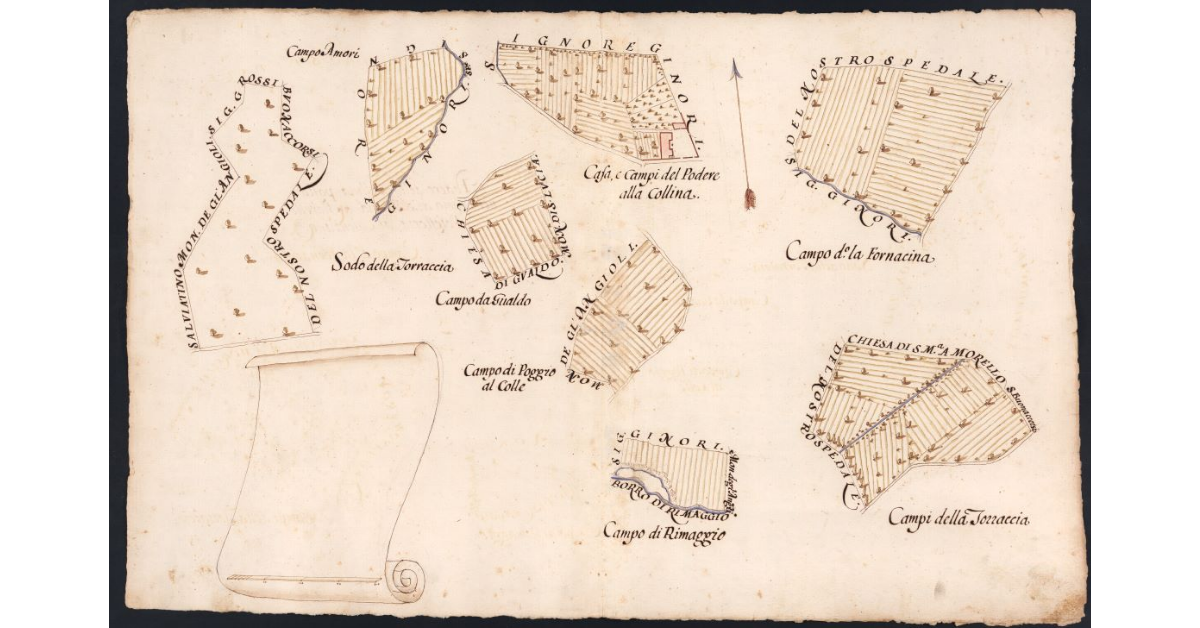 SALVIATINO MON. DE GL'ANGIOLI SIG. GROSSI
BUONACCORSI
DEL NOSTRO SPEDALE.
Campo Amori
REGINORI
Sodo della Torraccia
SIGNORE GINORI.
Casa, e Campi del Podere
alla Collina.
CHIESA
DI GVALDO.
MON. DI S. LUCIA
Campo da Gualdo
MON DE GLI ANGIOLI.
Campo di Poggio
al Colle
SIG GINORI.
Mon degl'Ang.
BORRO DI RIMAGGIO
Campo di Rimaggio
S DEL NOSTRO SPEDALE.
SIG. GINORI.
Campo do. la Fornacina
CHIESA DI S. M.a A MORELLO
S. Buonaccorsi
DEL NOSTRO SPEDALE
Campi della Torraccia